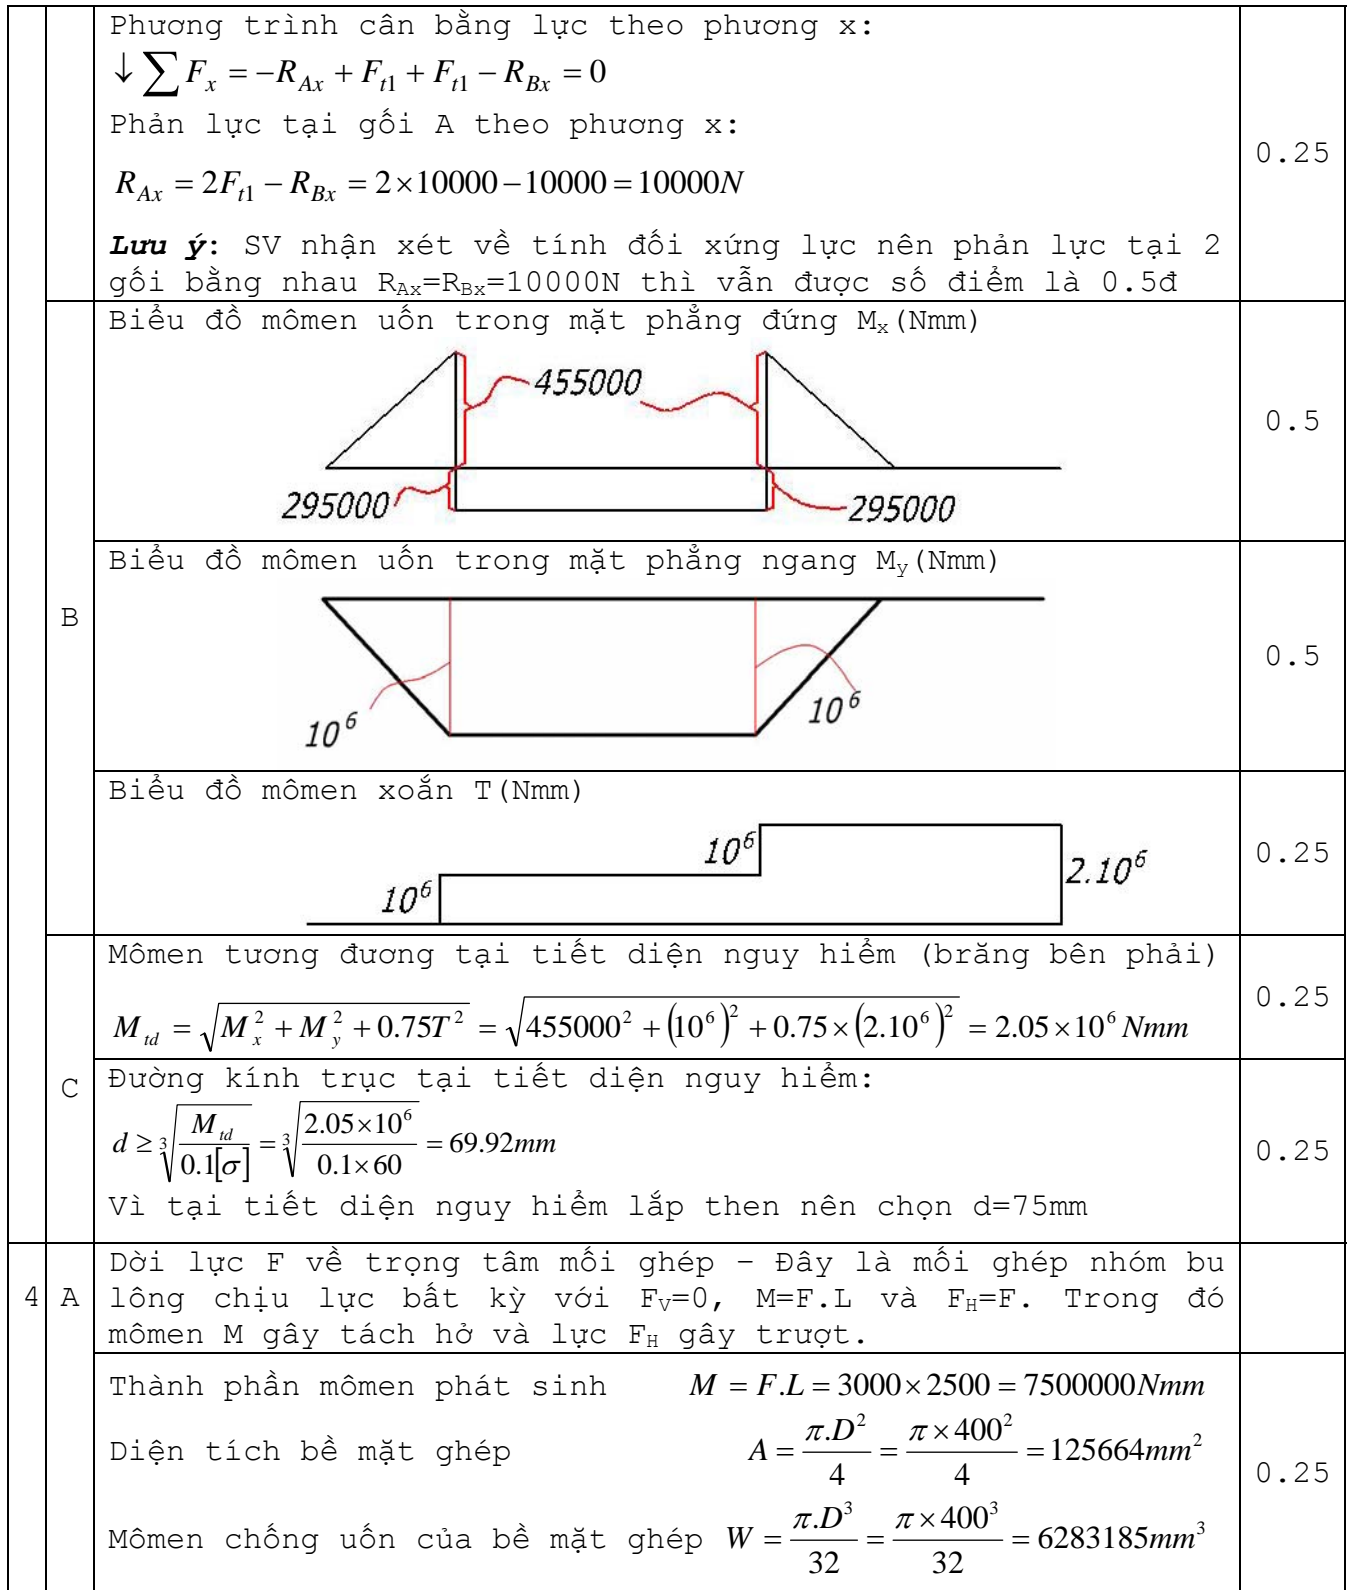 Phương trình cân bằng lực theo phương x:
↓∑F_x = −R_{Ax} + F_{t1} + F_{t1} − R_{Bx} = 0
Phản lực tại gối A theo phương x:
0.25
R_{Ax} = 2F_{t1} − R_{Bx} = 2×10000−10000 = 10000N
Lưu ý: SV nhận xét về tính đối xứng lực nên phản lực tại 2
gối bằng nhau R_{Ax}=R_{Bx}=10000N thì vẫn được số điểm là 0.5đ
B
Biểu đồ mômen uốn trong mặt phẳng đứng M_x(Nmm)
455000
295000
295000
0.5
Biểu đồ mômen uốn trong mặt phẳng ngang M_y(Nmm)
10^6
10^6
0.5
Biểu đồ mômen xoắn T(Nmm)
10^6
10^6
2.10^6
0.25
C
Mômen tương đương tại tiết diện nguy hiểm (brăng bên phải)
M_{td} = √(M_x^2 + M_y^2 + 0.75T^2) = √(455000^2 + (10^6)^2 + 0.75×(2.10^6)^2) = 2.05×10^6 Nmm
0.25
Đường kính trục tại tiết diện nguy hiểm:
d ≥ ∛(M_{td}/0.1[σ]) = ∛(2.05×10^6/0.1×60) = 69.92mm
0.25
Vì tại tiết diện nguy hiểm lắp then nên chọn d=75mm
4 A
Dời lực F về trọng tâm mối ghép – Đây là mối ghép nhóm bu
lông chịu lực bất kỳ với F_V=0, M=F.L và F_H=F. Trong đó
mômen M gây tách hở và lực F_H gây trượt.
Thành phần mômen phát sinh M = F.L = 3000×2500 = 7500000Nmm
Diện tích bề mặt ghép A = π.D^2/4 = π×400^2/4 = 125664mm^2
0.25
Mômen chống uốn của bề mặt ghép W = π.D^3/32 = π×400^3/32 = 6283185mm^3